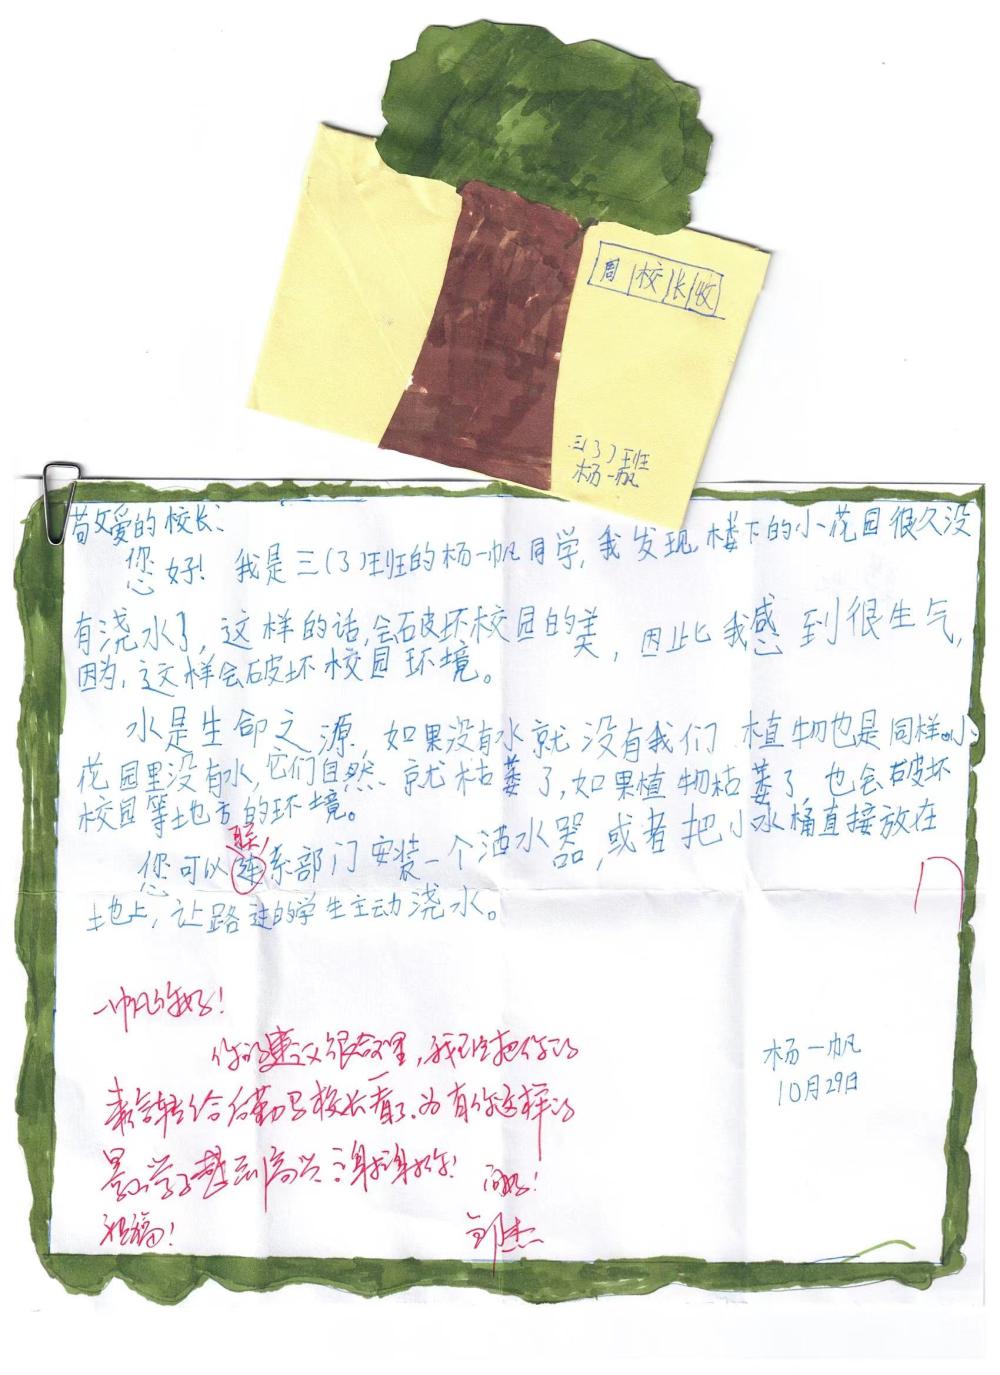 周校长收
三(3)班
杨一帆
敬爱的校长、
您好！我是三(3)班的杨一帆同学,我发现楼下的小花园很久没
有浇水了,这样的话,会破坏校园的美,因此我感到很生气,
因为,这样会破坏校园环境。
水是生命之源,如果没有水就没有我们,植物也是同样。小
花园里没有水,它们自然就枯萎了,如果植物枯萎了,也会破坏
校园等地方的环境。
联
您可以连系部门安装一个洒水器,或者把小水桶直接放在
土地上,让路过的学生主动浇水。
杨一帆
10月29日
一帆你好！
你的建议很合理，我已经把你的
来信转给后勤马校长看了，为有你这样的
学子感到高兴！谢谢你！
问好！
祝福！